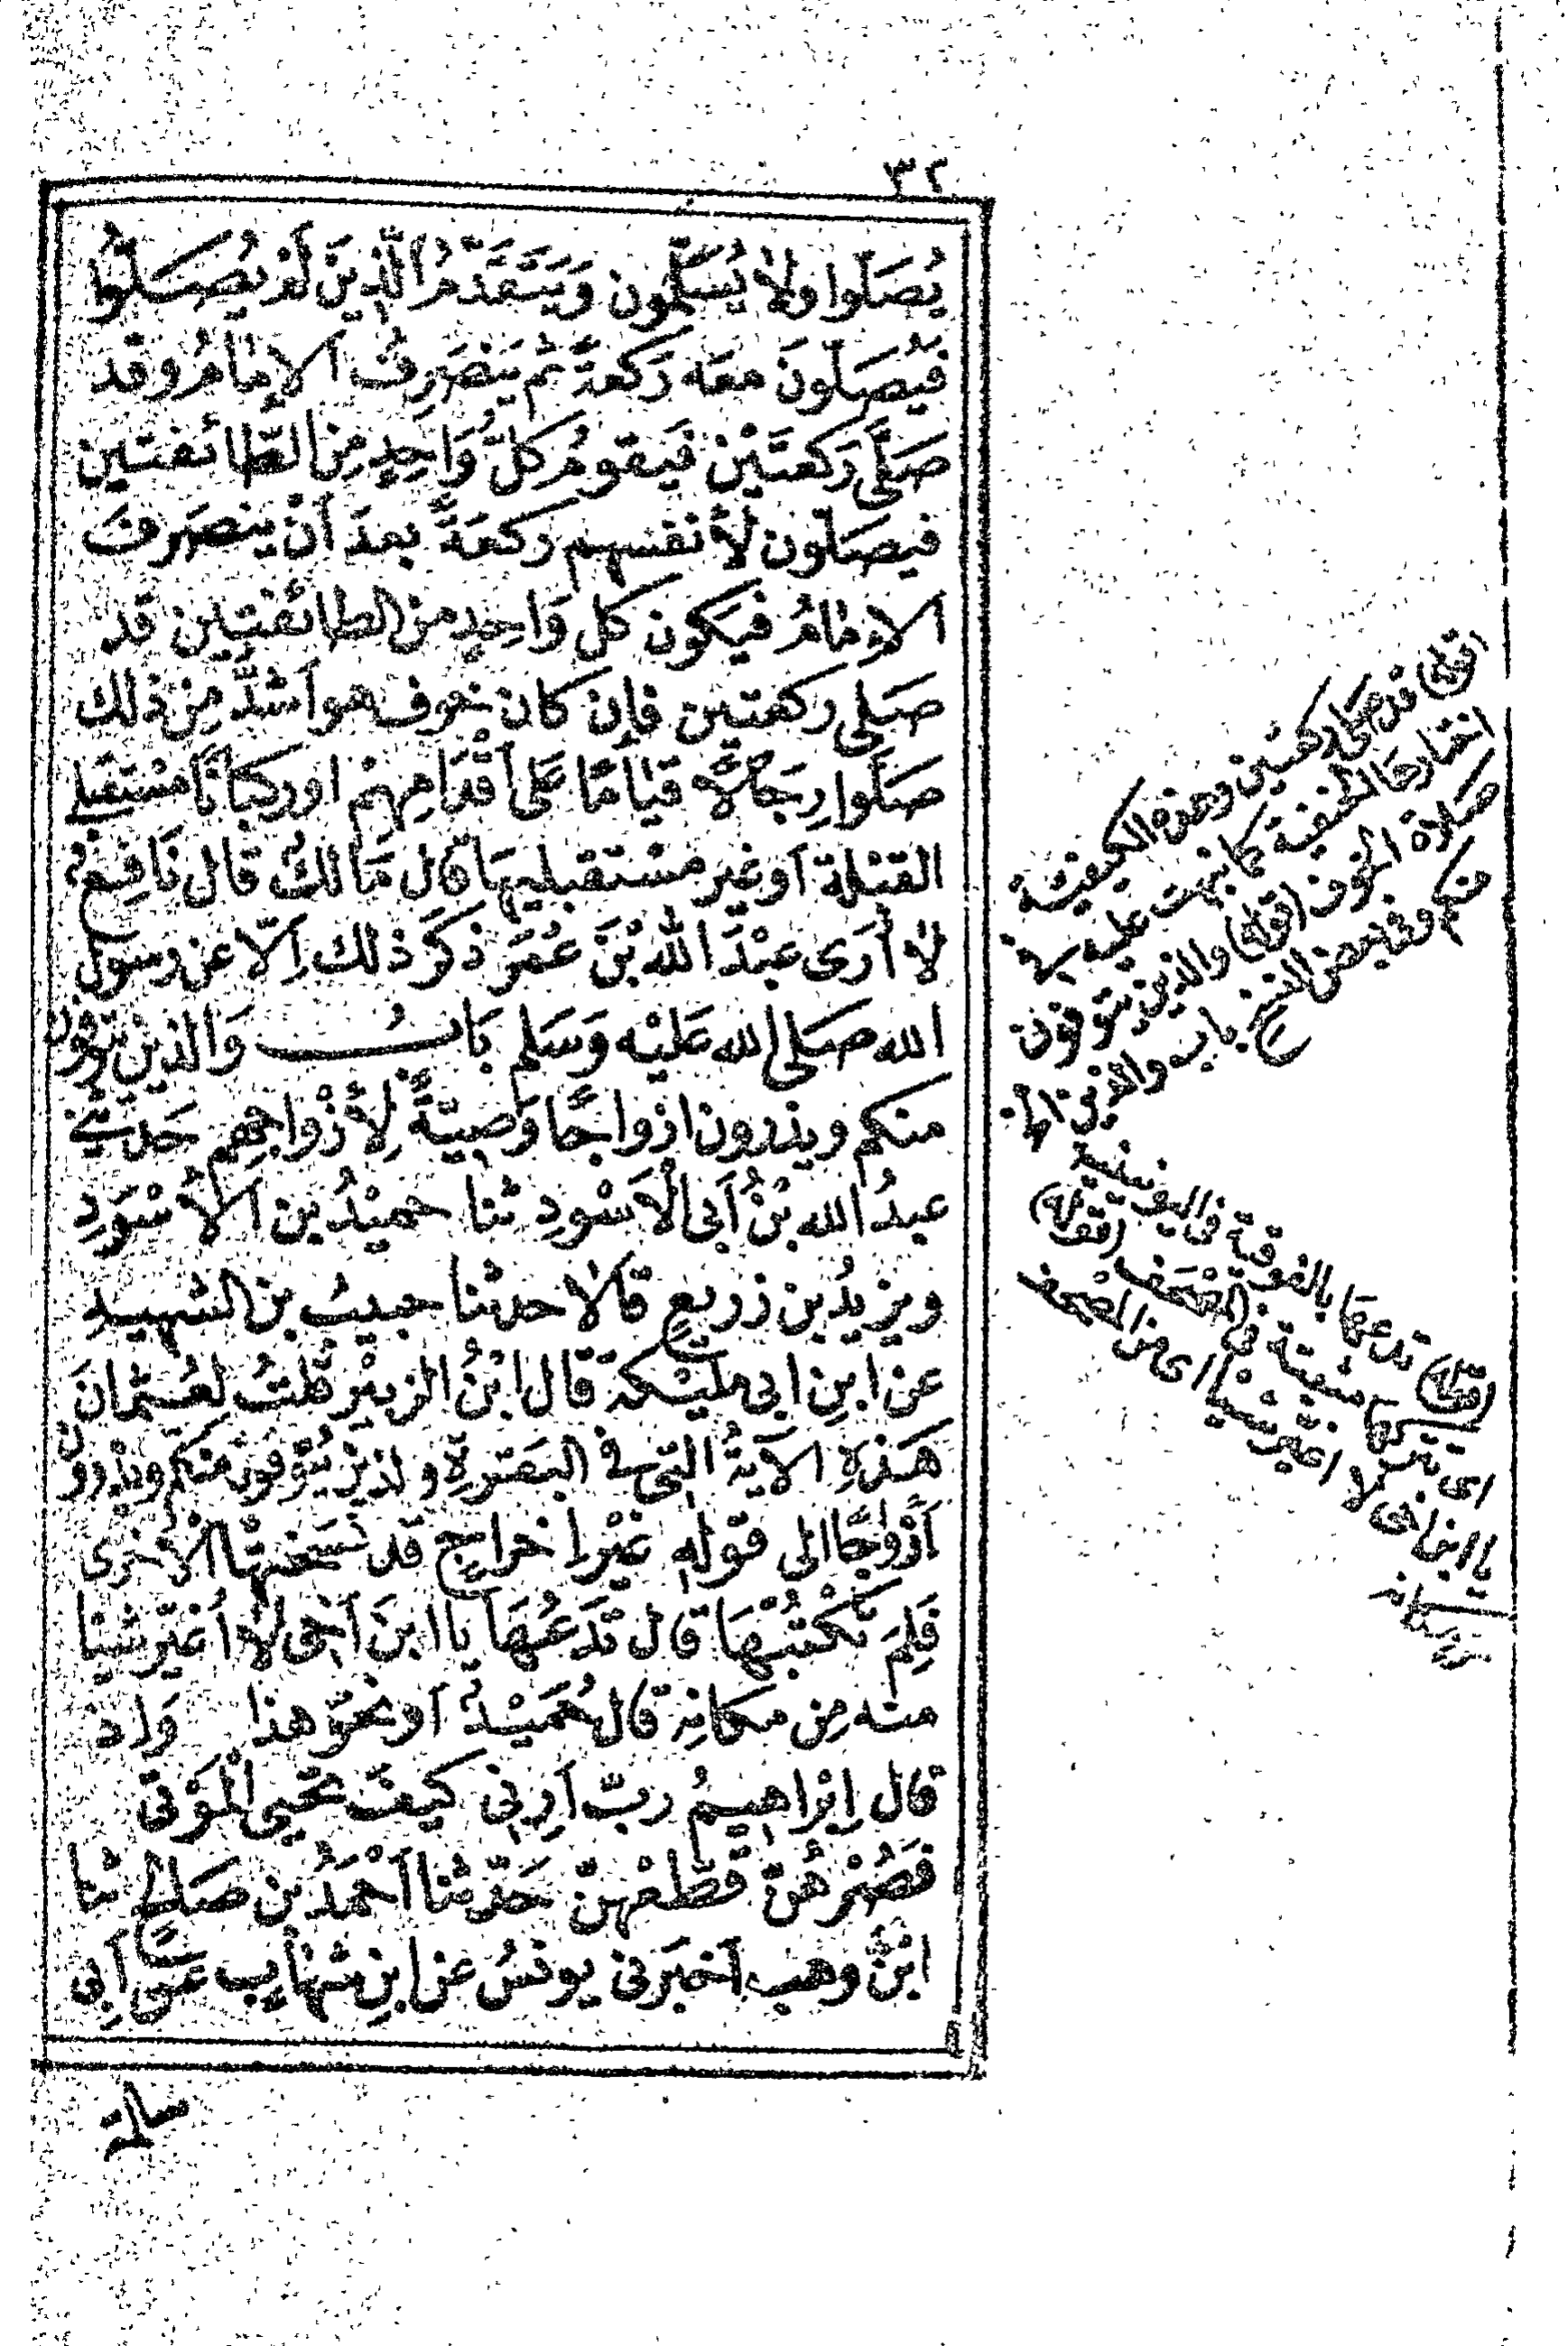 ٣٢
يُصَلّوا ولا يُسَلِّمون وَيَتَقَدَّمُ الَّذِينَ لَمْ يُصَلُّوا
فَيُصَلّونَ معَه رَكعةً ثم يَنْصَرِفُ الإمَامُ وقد
صَلَّى رَكعتَيْن فَيقومُ كلُّ وَاحِدٍ مِن الطَّائفتين
فيصلّون لأنفسهم ركعَةً بعدَ أنْ ينصَرفَ
الإمَامُ فيَكون كل وَاحِدٍ من الطائفتين قد
صَلى ركعتين فإن كان خوف هو أشدَّ مِن ذلك
صَلّوا رِجَالاً قيَامًا عَلى أقْدَامِهِمْ او ركبَانًا مُسْتقبلي
القبْلة أو غيرَ مسْتقبليهَا قال مَالكٌ قال نَافِعٌ
لا أُرَى عبْدَ الله بْنَ عُمَرَ ذكَرَ ذلك إلّا عن رسول
الله صَلى الله عَليْه وَسَلم بَابُ وَالذين يتوفون
منكم ويذرون ازواجًا وَصِيَّةً لِأزْواجِهِم حَدثني
عبدُ الله بْنُ أبى الأسْودِ ثنا حميْدُ بن الأسْوَدِ
ويزيدُ بن زريعٍ قالا حدثنا حبيبُ بن الشهيدِ
عن ابنِ ابى مليْكة قال ابْنُ الزبيْر قلتُ لعُثمانَ
هَذهِ الآيَةُ التي في البَقرةِ والذينَ يُتَوَفّونَ منكم ويذرون
أزْواجًا الى قوله غيْر إخراجٍ قد نسَخَتْهَا الأخرَى
فَلِمَ تكْتبُهَا قال تَدَعُهَا يا ابنَ أخى لا أُغيّر شيئا
منه مِن مكانِه قال حُمَيْدٌ أو نحْوَ هذا وَإذ
قال إبْراهيمُ ربّ أرِنى كيفَ تحْيِى الْمَوْتى
فَصُرْهُنّ قَطّعْهنّ حَدّثنا أحْمَدُ بن صَالحٍ ثنا
ابْنُ وهبٍ أخبَرنى يونسُ عن ابنِ شهَابٍ عن أبِى
سلمة
(قوله) قد صلى ركعتين وهذه الكيفية
اختارها الحنفية كما نبهت عليه في
صلاة الخوف (قوله) والذين يتوفون
منكم وفى بعض النسخ باب والذين الخ
(قوله) تدعها بالفوقية فى اليونينية (قوله)
اى تتركها مثبتة في المصحف
يا ابن اخى لا اغير شيئا اى من المصحف